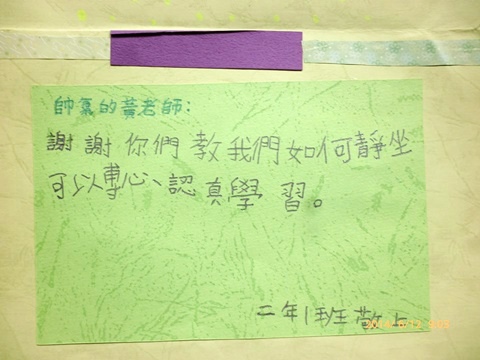 帥氣的黃老師:
謝謝你們教我們如何靜坐
可以專心、認真學習。
二年1班敬上